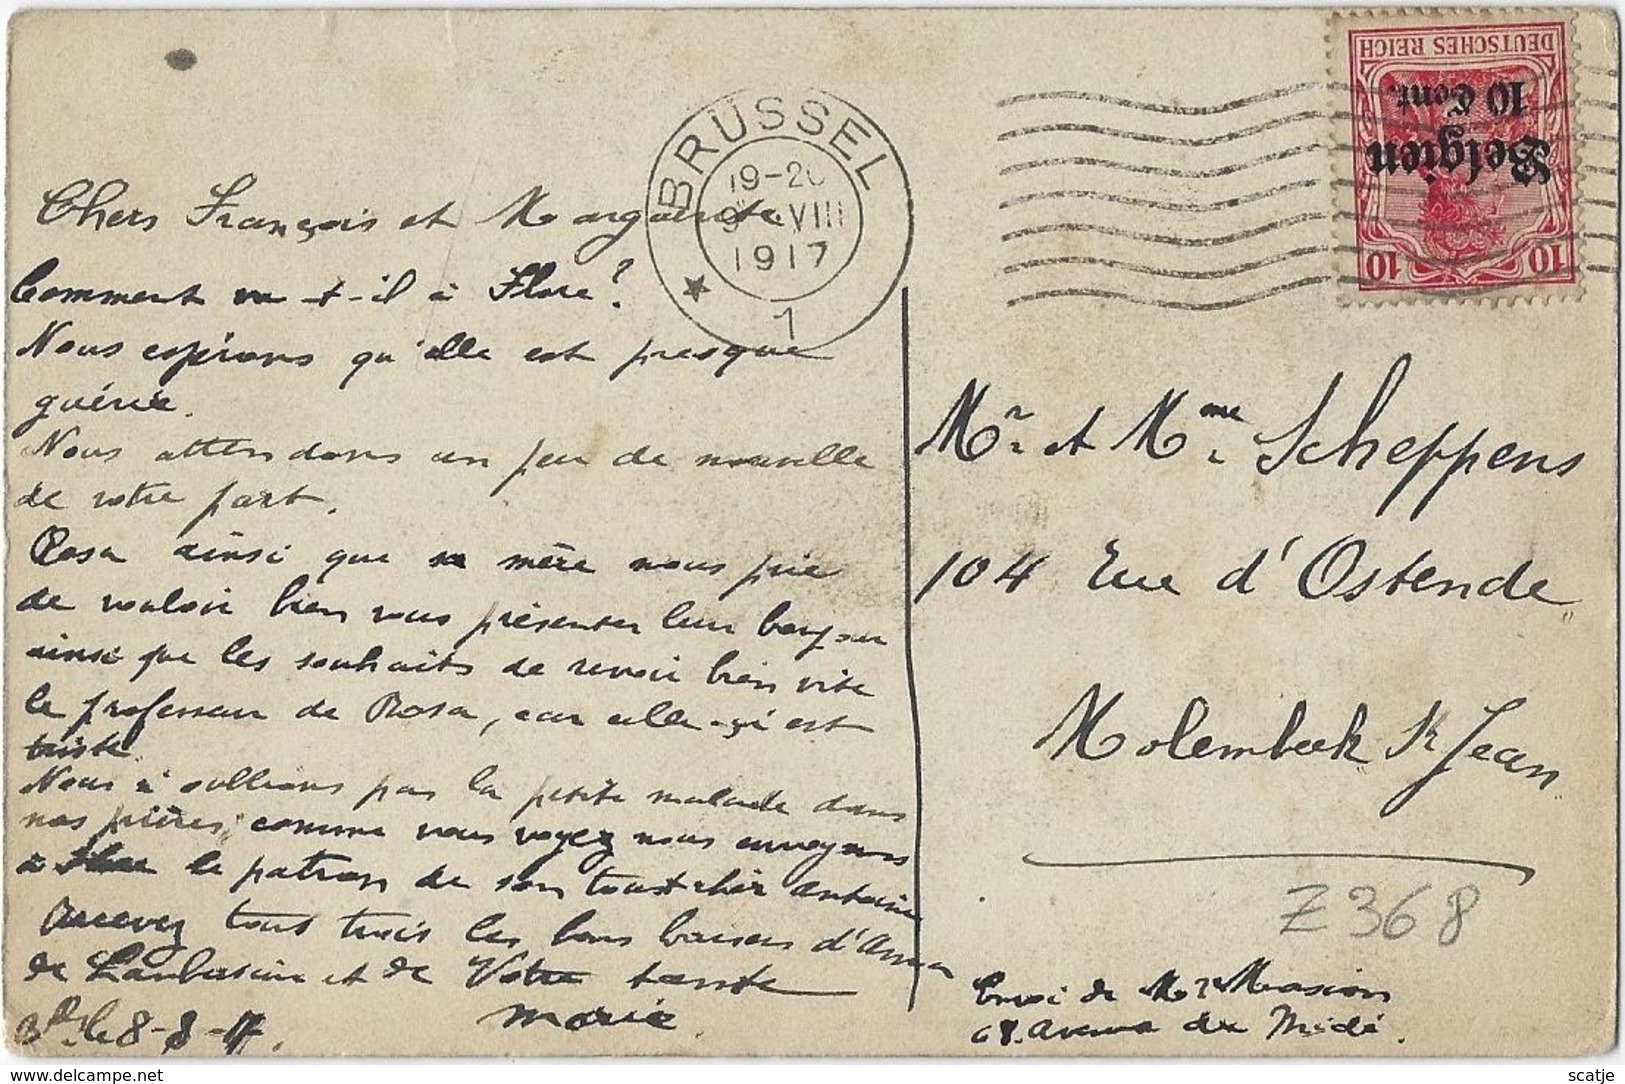 Chers François et Marguerite
Comment va-t-il à Flore?
Nous espérons qu'elle est presque
guérie.
Nous attendons un peu de nouvelle
de votre part.
Rosa ainsi que sa mère nous prie
de vouloir bien vous présenter leur bonjour
ainsi que les souhaits de revoir bien vite
le professeur de Rosa, car celle-çi est
triste.
Nous n'oublions pas la petite malade dans
nos prières, comme vous voyez nous envoyons
à Flore le patron de son tout cher Antoine
Recevez tous trois les bons baisers d'
de et de Votre tante
Marie
Bx. le 8-8-17.
BRÜSSEL
19-20
9 VIII
1917
1
DEUTSCHES REICH
Belgien
10 Cent.
10 10
Mr. et Mme. Scheppens
104 Rue d'Ostende
Molembeek St Jean
Z368
Envoi de Mr Masion
68. Avenue du Midi.
https://www.delcampe.net
scatje